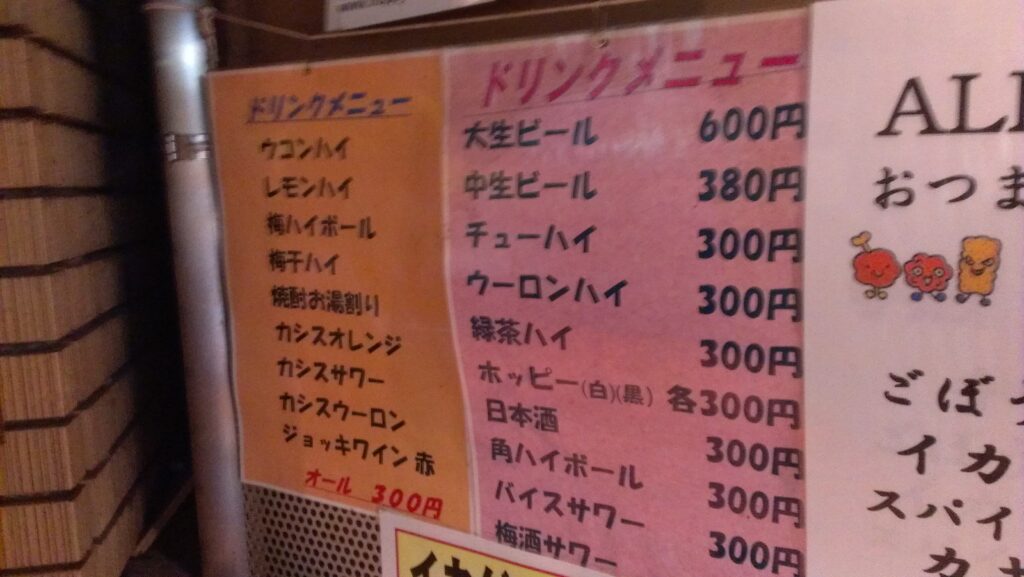 ドリンクメニュー
ウコンハイ
レモンハイ
梅ハイボール
梅干ハイ
焼酎お湯割り
カシスオレンジ
カシスサワー
カシスウーロン
ジョッキワイン 赤
オール 300円
ドリンクメニュー
大生ビール 600円
中生ビール 380円
チューハイ 300円
ウーロンハイ 300円
緑茶ハイ 300円
ホッピー(白)(黒) 各300円
日本酒 300円
角ハイボール 300円
バイスサワー 300円
梅酒サワー
AL
おつま
ごぼ
イカ
スパイ